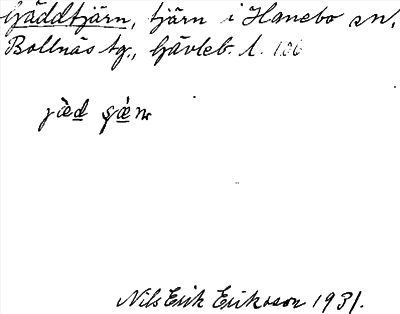 Gäddtjärn, tjärn i Hanebo sn,
Bollnäs tg., Gävleb. l. 106
Nils Erik Eriksson 1931.